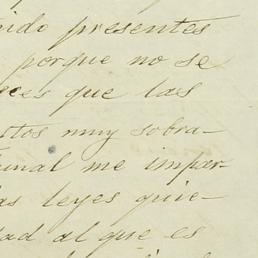 nido presentes
porque no se
ces que las
stos muy sobra-
unal me impar-
as leyes quie-
dad al que es